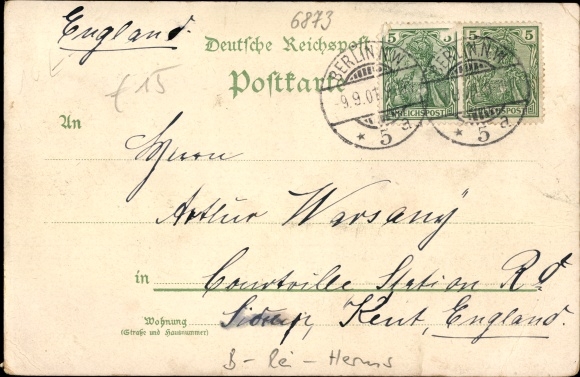 6873
England.
Deutsche Reichspost
Postkarte
5 5
5
REICHSPOST
REICHSPOST
BERLIN N.W.
-9.9.01
* 5 a
BERLIN N.W.
* 5 a
£15
An
Herrn
Arthur Warsany
in Courtville Station Rd
Wohnung
(Straße und Hausnummer)
Kent, England.
B-